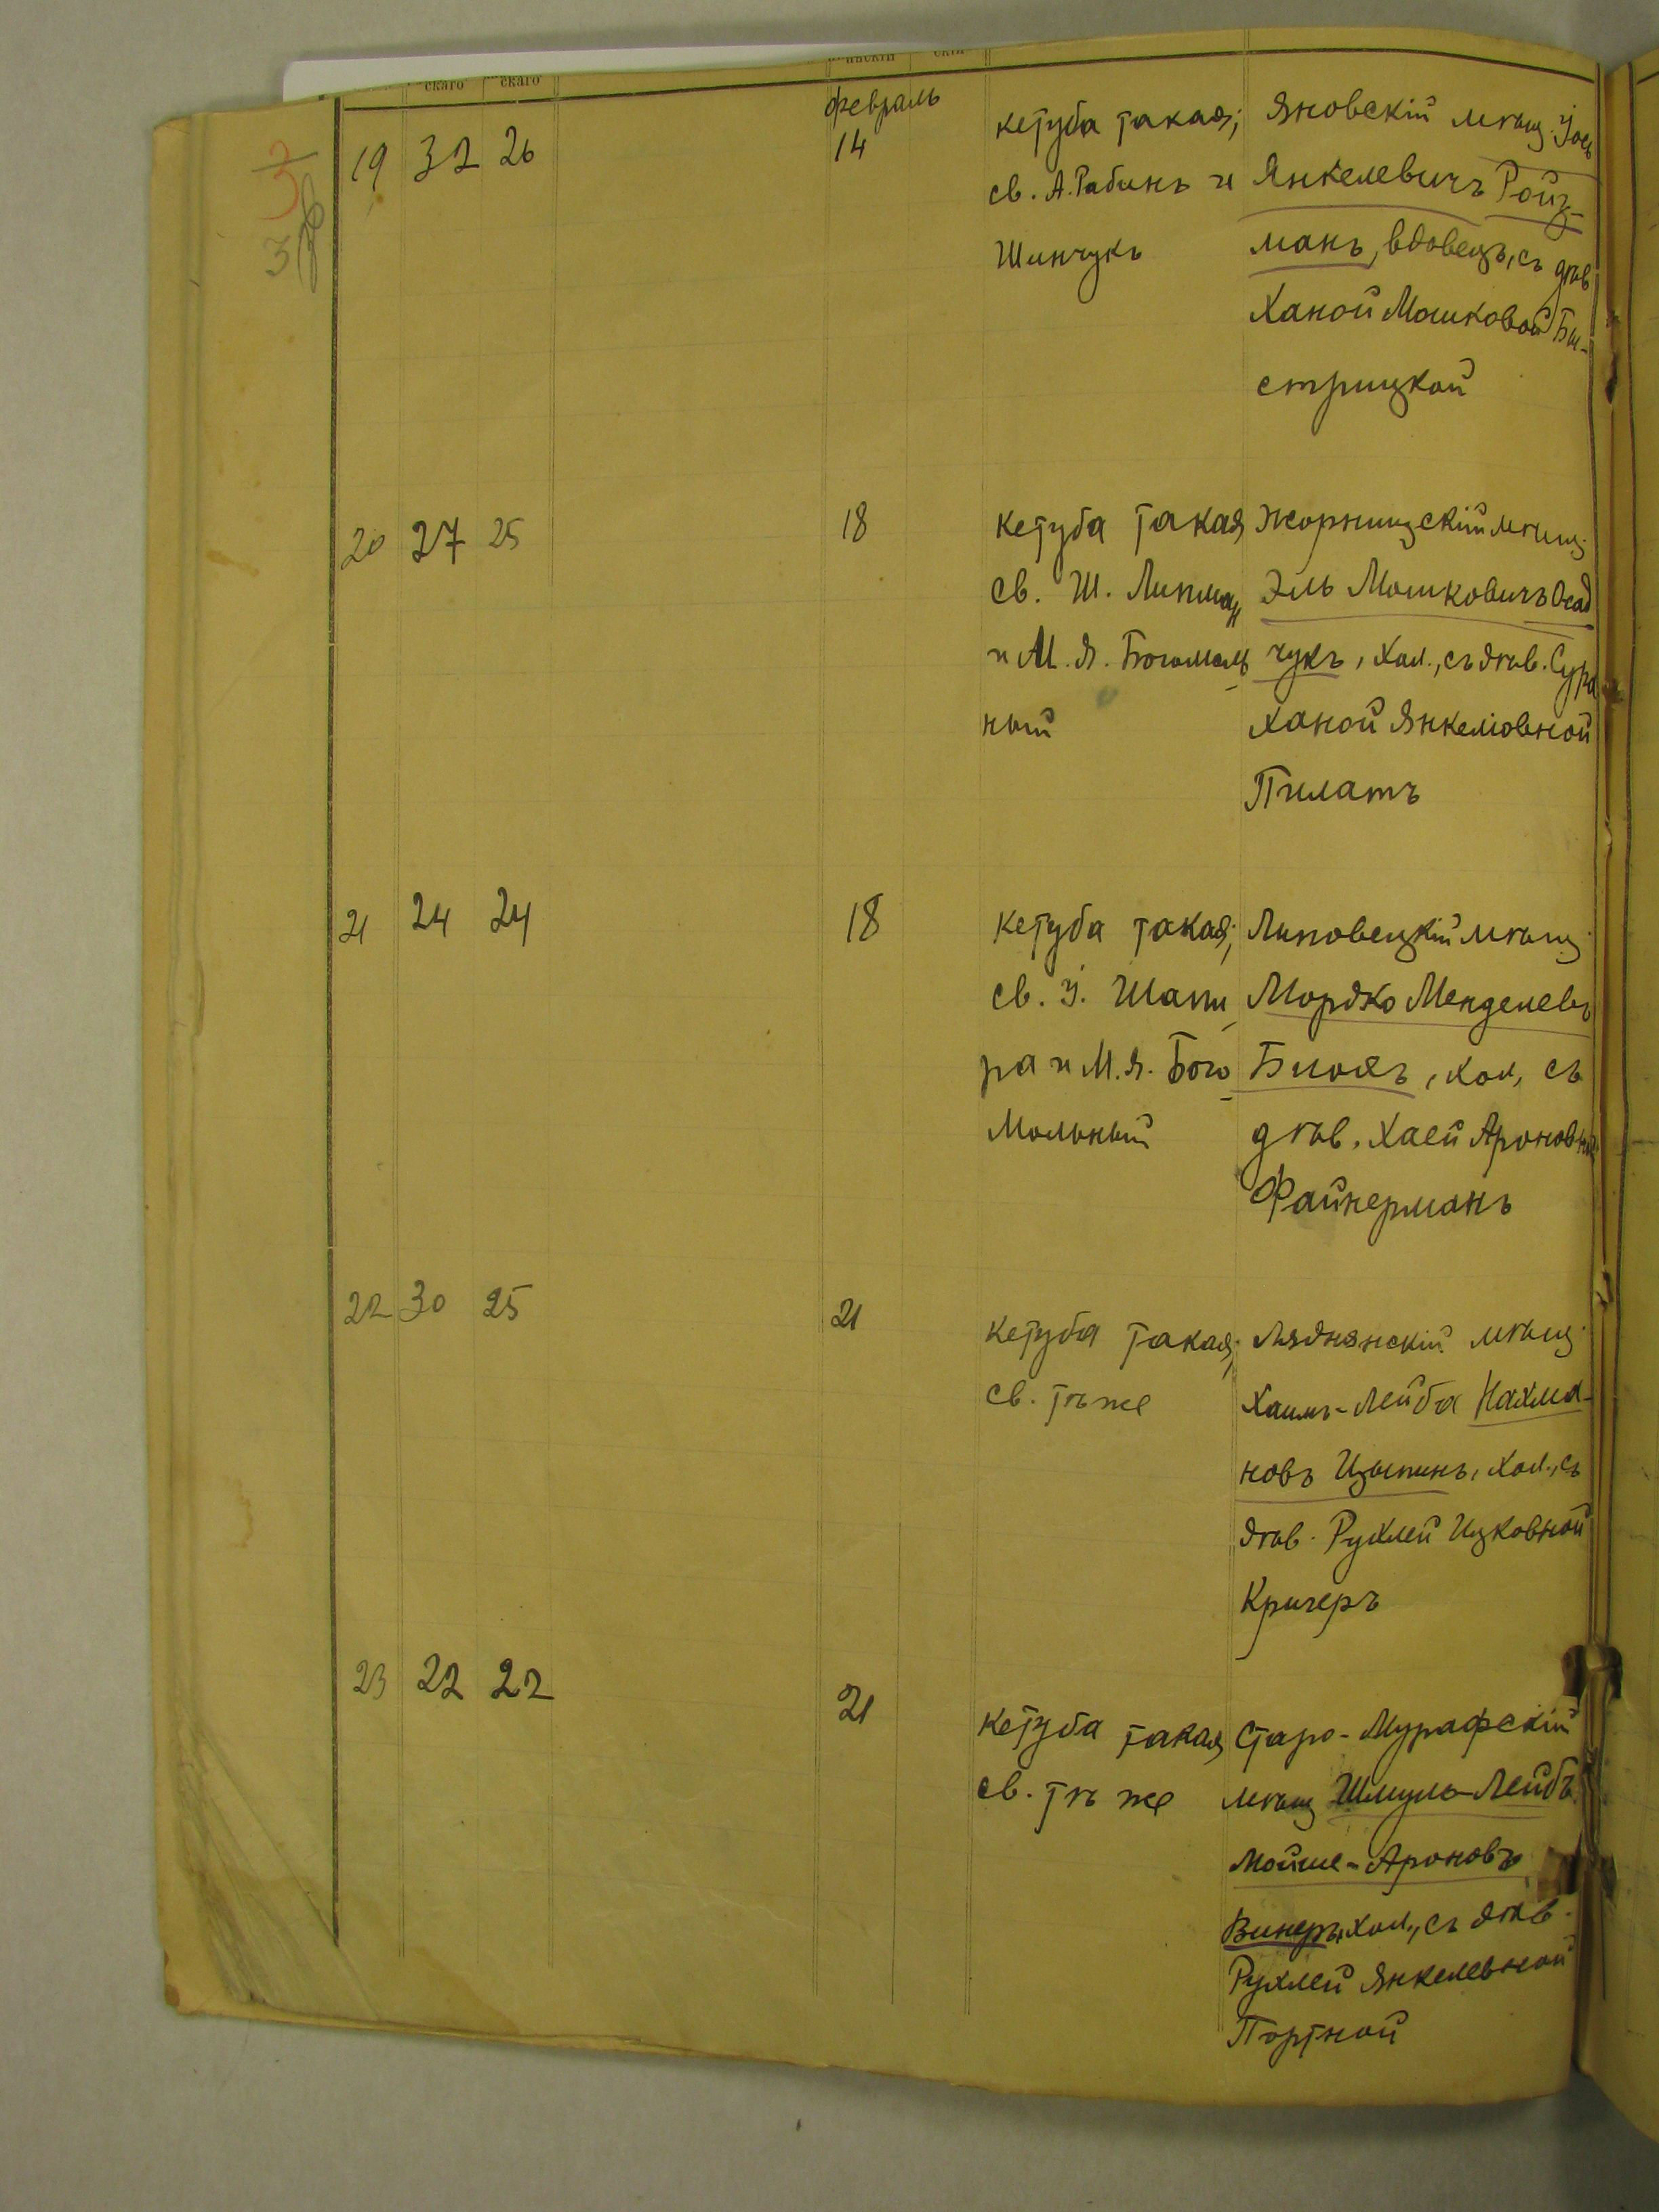 скаго скаго
февраль
19 32 26 14
кетуба такая;
св. А. Рабинъ и
Шинчукъ
Яновскій мѣщ. Іось
Янкелевичъ Ройз-
манъ, вдовецъ, съ дѣв
Ханой Мошковой Бы-
стрицкой
20 27 25 18
кетуба такая
св. Ш. Липман
и М. Я. Богомоль
ный
Жорнищскій мѣщ.
Эль Мошковичъ Осад
чукъ, хол., съ дѣв. Сура
Ханой Янкеліовной
Пилатъ
21 24 24 18
кетуба такая;
св. І. Шапи
ра и М. Я. Бого
мольный
Липовецкій мѣщ.
Мордко Менделевъ
Билякъ, хол, съ
дѣв. Хаей Ароновной
Файнерманъ
22 30 25 21
кетуба такая;
св. тѣ же
Ляднянскій мѣщ.
Хаимъ-Лейба Нахма-
новъ Цыпинъ, хол., съ
дѣв. Рухлей Ицковной
Кричеръ
23 22 22 21
кетуба такая
св. тѣ же
Старо-Мурафскій
мѣщ Шмуль-Лейбъ
Мойше-Ароновъ
Винеръ, хол., съ дѣв.
Рухлей Янкелевной
Портной